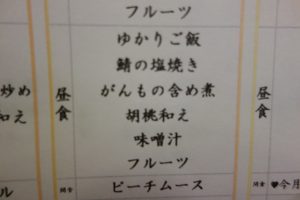 フルーツ
昼食
ゆかりご飯
鯖の塩焼き
がんもの含め煮
胡桃和え
味噌汁
フルーツ
間食
ピーチムース
炒め
和え
ル
昼食
間食
♥今月